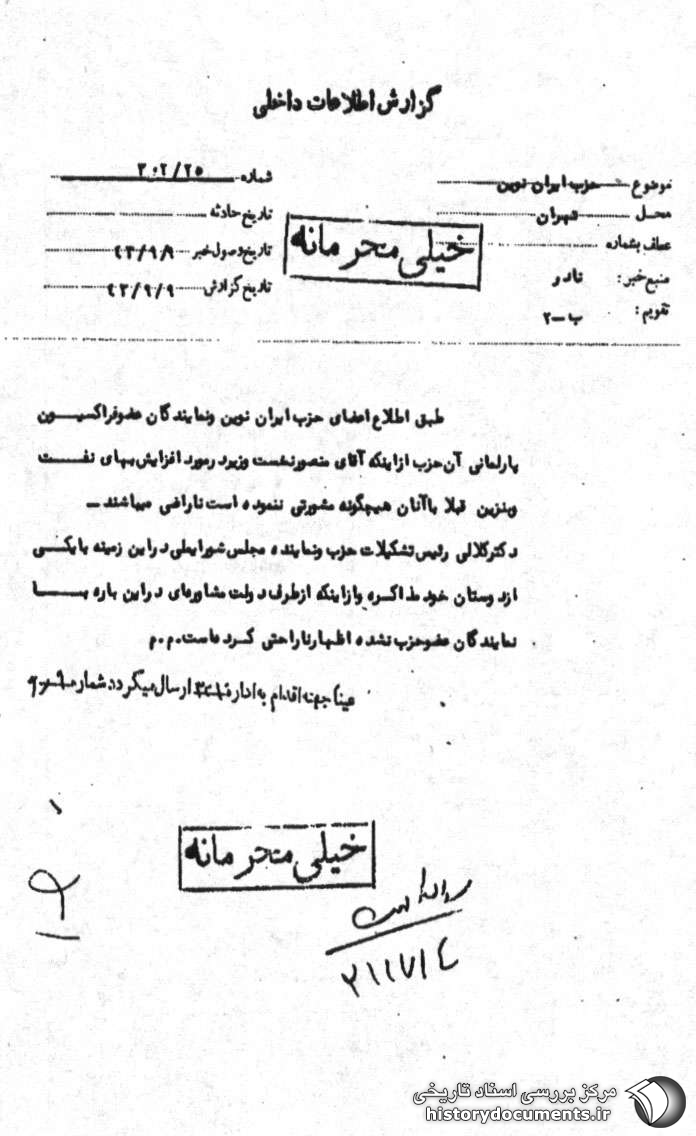 گزارش اطلاعات داخلی
موضوع حزب ایران نوین شماره ۳۰۲/۲۵
محل تهران تاریخ حادثه
عطف بشماره تاریخ وصول خبر ۴۳/۹/۹
منبع خبر: نادر تاریخ گزارش ۴۳/۹/۹
تقویم: ب-۲
خیلی محرمانه
طبق اطلاع اعضای حزب ایران نوین و نمایندگان عضو فراکسیون
پارلمانی آن حزب از اینکه آقای منصور نخست وزیر در مورد افزایش بهای نفت
و بنزین قبلا با آنان هیچگونه مشورتی ننموده است ناراضی میباشند ــ
دکتر کلالی رئیس تشکیلات حزب و نماینده مجلس شورایملی در این زمینه با یکی
از دوستان خود مذاکره و از اینکه از طرف دولت مشاوره‌ای در این باره با
نمایندگان عضو حزب نشده اظهار ناراحتی کرده است. م. م
عیناً جهت اقدام به اداره ارسال میگردد. شماره
خیلی محرمانه
مرکز بررسی اسناد تاریخی
historydocuments.ir